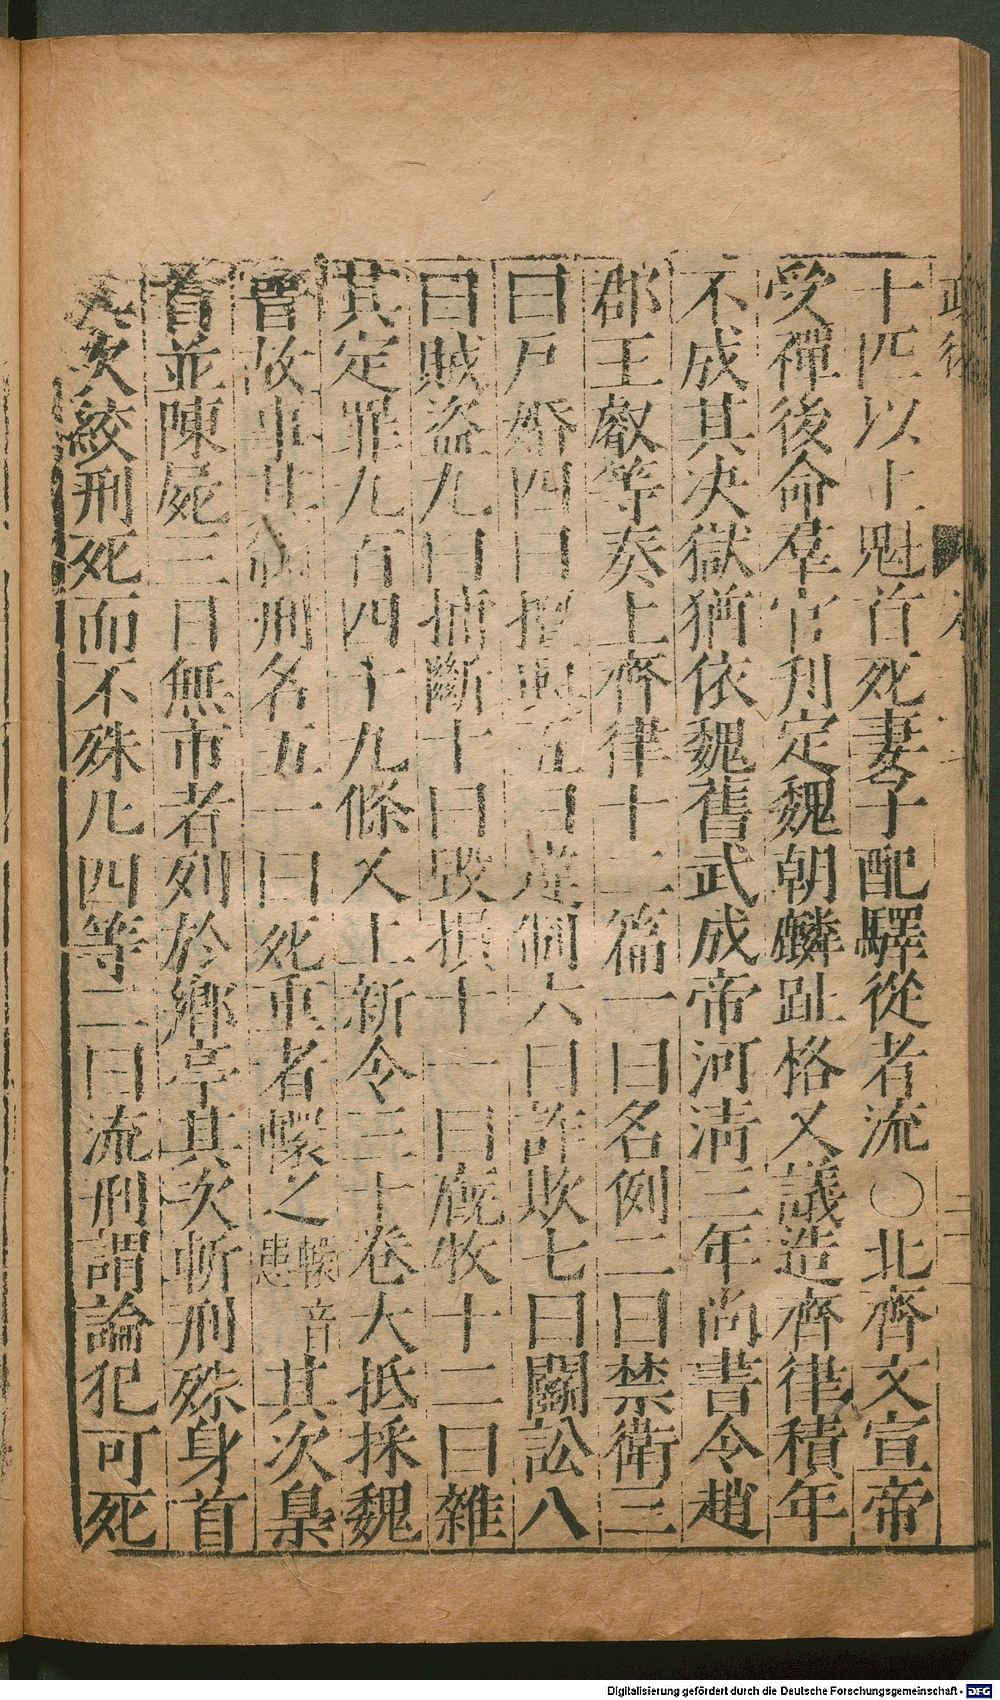 十匹以上魁首死妻子配驛從者流〇北齊文宣帝
受禪後命羣官刊定魏朝麟趾格又議造齊律積年
不成其決獄猶依魏舊武成帝河淸三年尚書令趙
郡王叡等奏上齊律十二篇一曰名例二曰禁衛三
曰戶婚四曰擅興五曰違制六曰詐欺七曰鬬訟八
曰賊盜九曰捕斷十曰毀損十一曰廐牧十二曰雜
其定罪九百四十九條又上新令三十卷大抵採魏
晉故事其制刑名五一曰死重者轘之轘音患其次梟
首並陳屍三日無市者列於鄉亭其次斬刑殊身首
其次絞刑死而不殊凡四等二曰流刑謂論犯可死
Digitalisierung gefördert durch die Deutsche Forschungsgemeinschaft - DFG